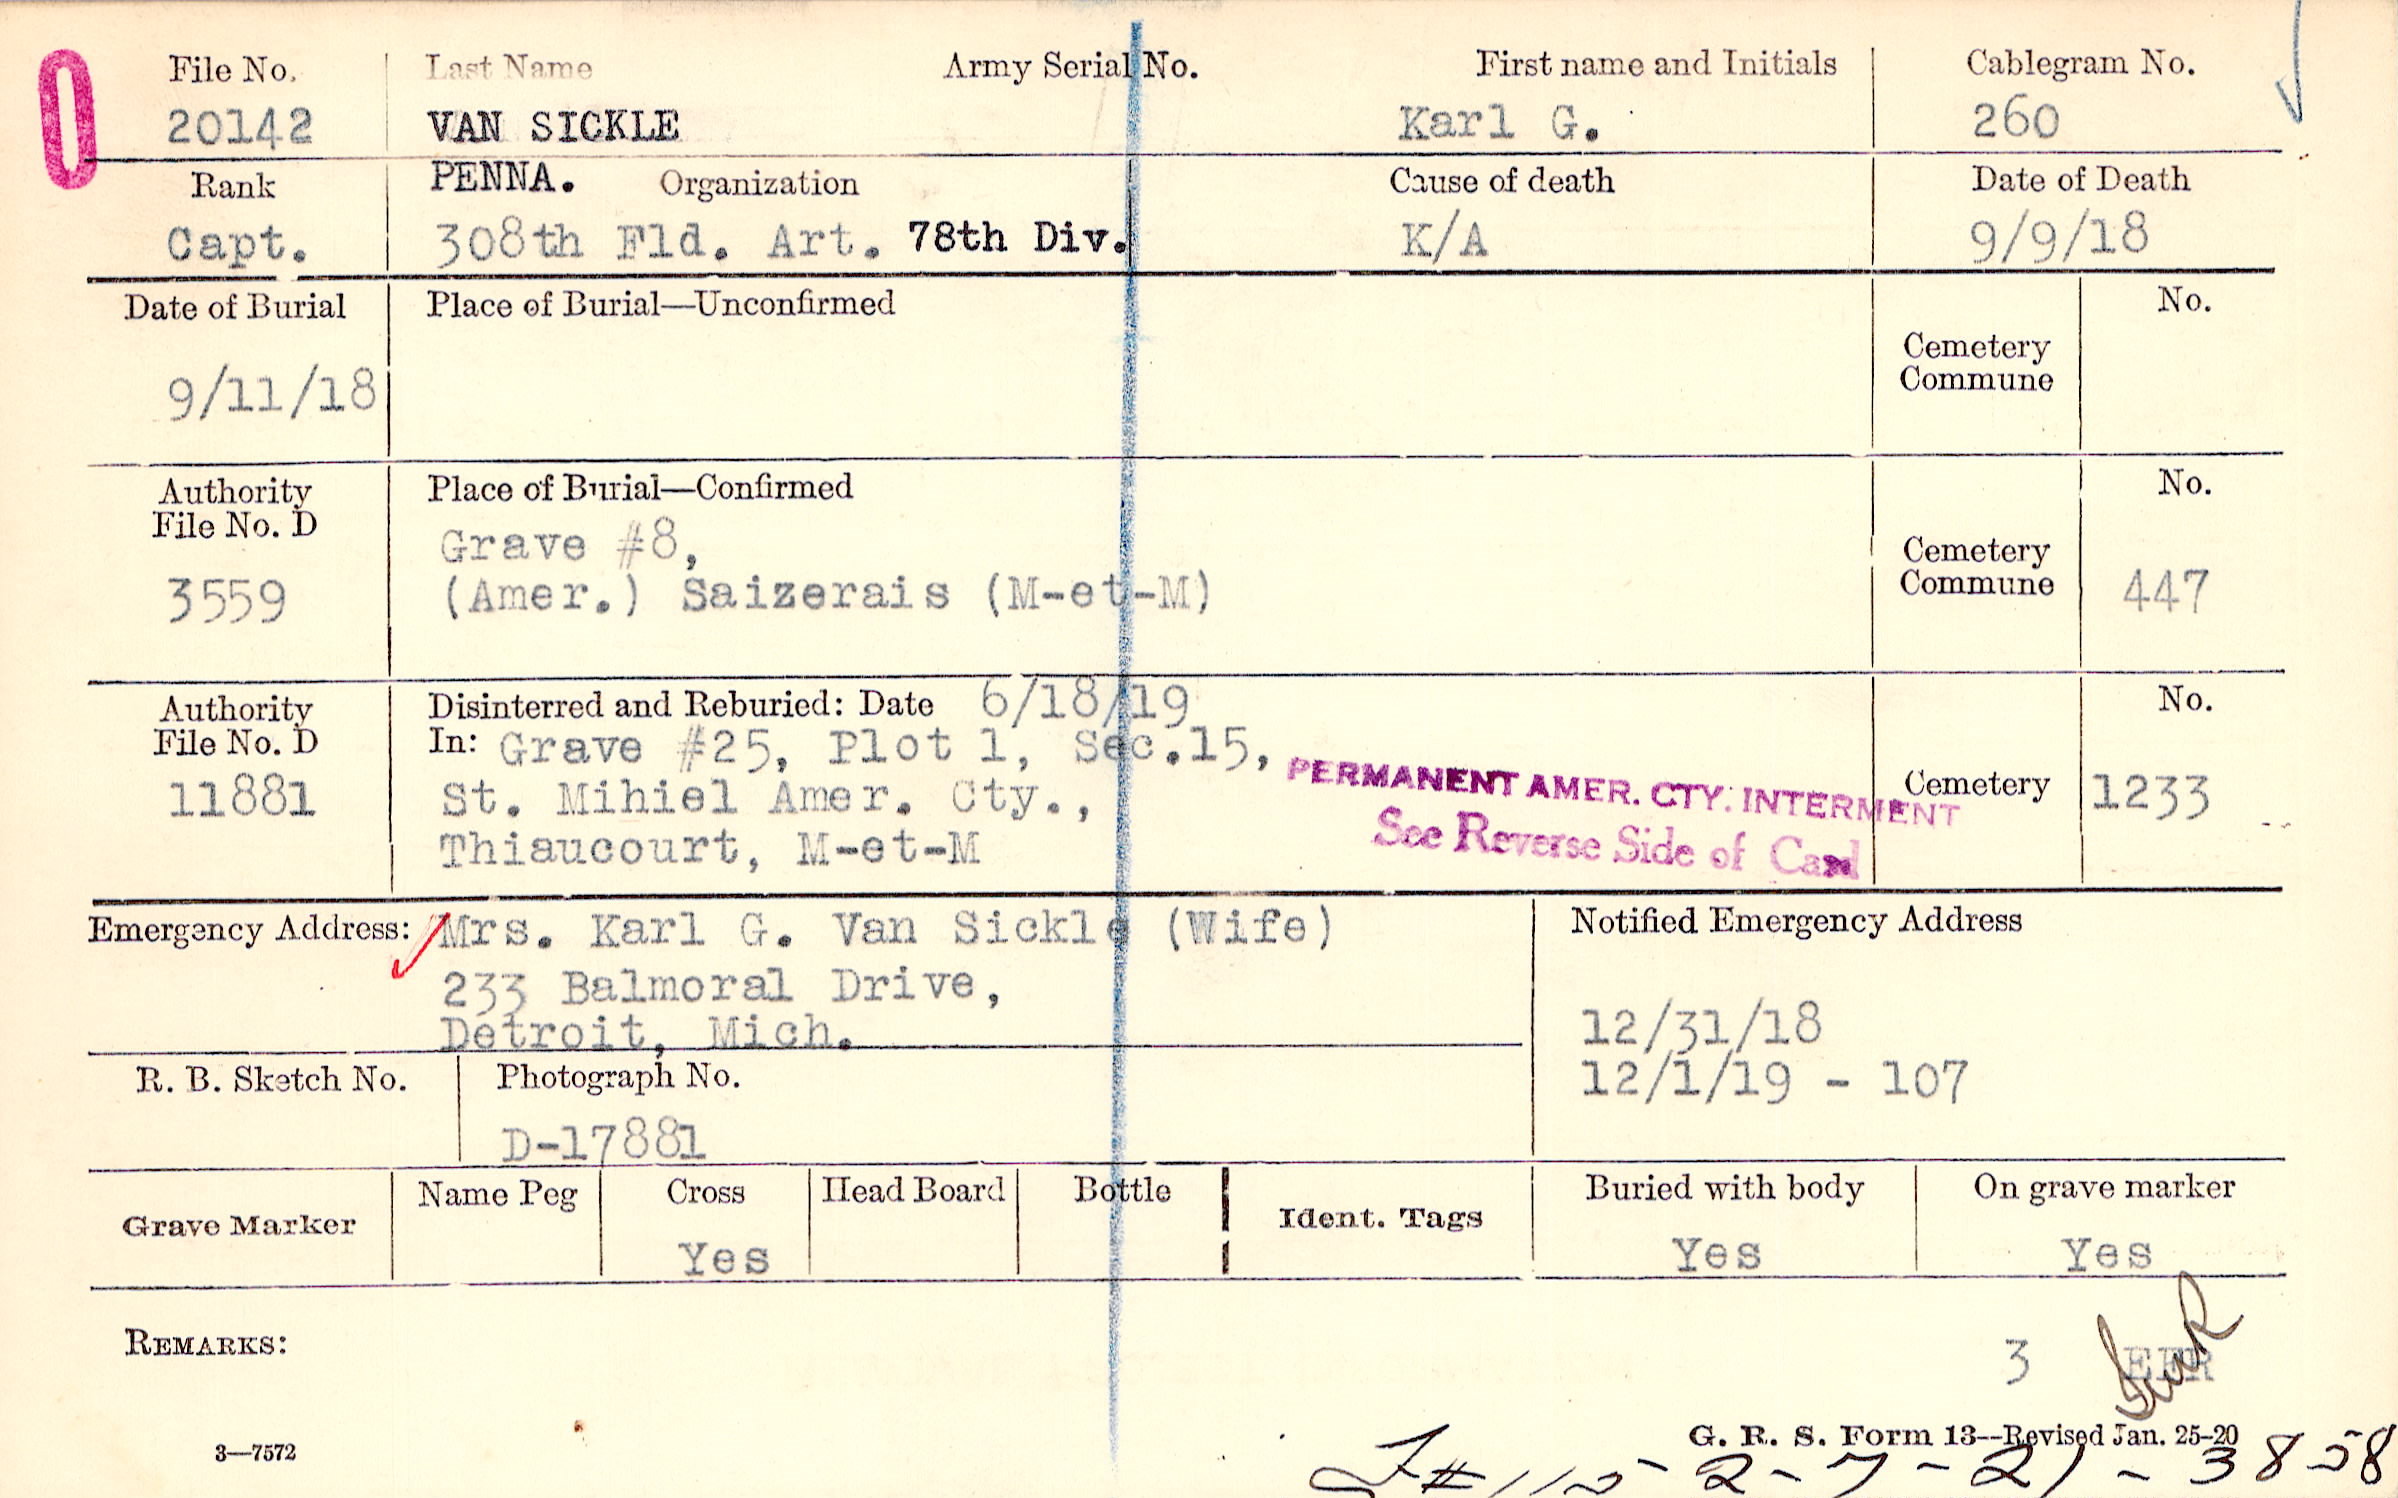 File No.
Last Name
Army Serial No.
First name and Initials
Cablegram No.
20142
VAN SICKLE
Karl G.
260
Rank
PENNA.
Organization
Cause of death
Date of Death
Capt.
308th Fld. Art. 78th Div.
K/A
9/9/18
Date of Burial
Place of Burial—Unconfirmed
Cemetery
Commune
No.
9/11/18
Authority
File No. D
3559
Place of Burial—Confirmed
Grave #8,
(Amer.) Saizerais (M-et-M)
Cemetery
Commune
No.
447
Authority
File No. D
11881
Disinterred and Reburied: Date 6/18/19
In: Grave #25, Plot 1, Sec.15,
St. Mihiel Amer. Cty.,
Thiaucourt, M-et-M
PERMANENT AMER. CTY. INTERMENT
See Reverse Side of Card
Cemetery
No.
1233
Emergency Address:
Mrs. Karl G. Van Sickle (Wife)
233 Balmoral Drive,
Detroit, Mich.
Notified Emergency Address
12/31/18
12/1/19 - 107
R. B. Sketch No.
Photograph No.
D-17881
Grave Marker
Name Peg
Cross
Yes
Head Board
Bottle
Ident. Tags
Buried with body
Yes
On grave marker
Yes
REMARKS:
3
3—7572
G. R. S. Form 13—Revised Jan. 25-20